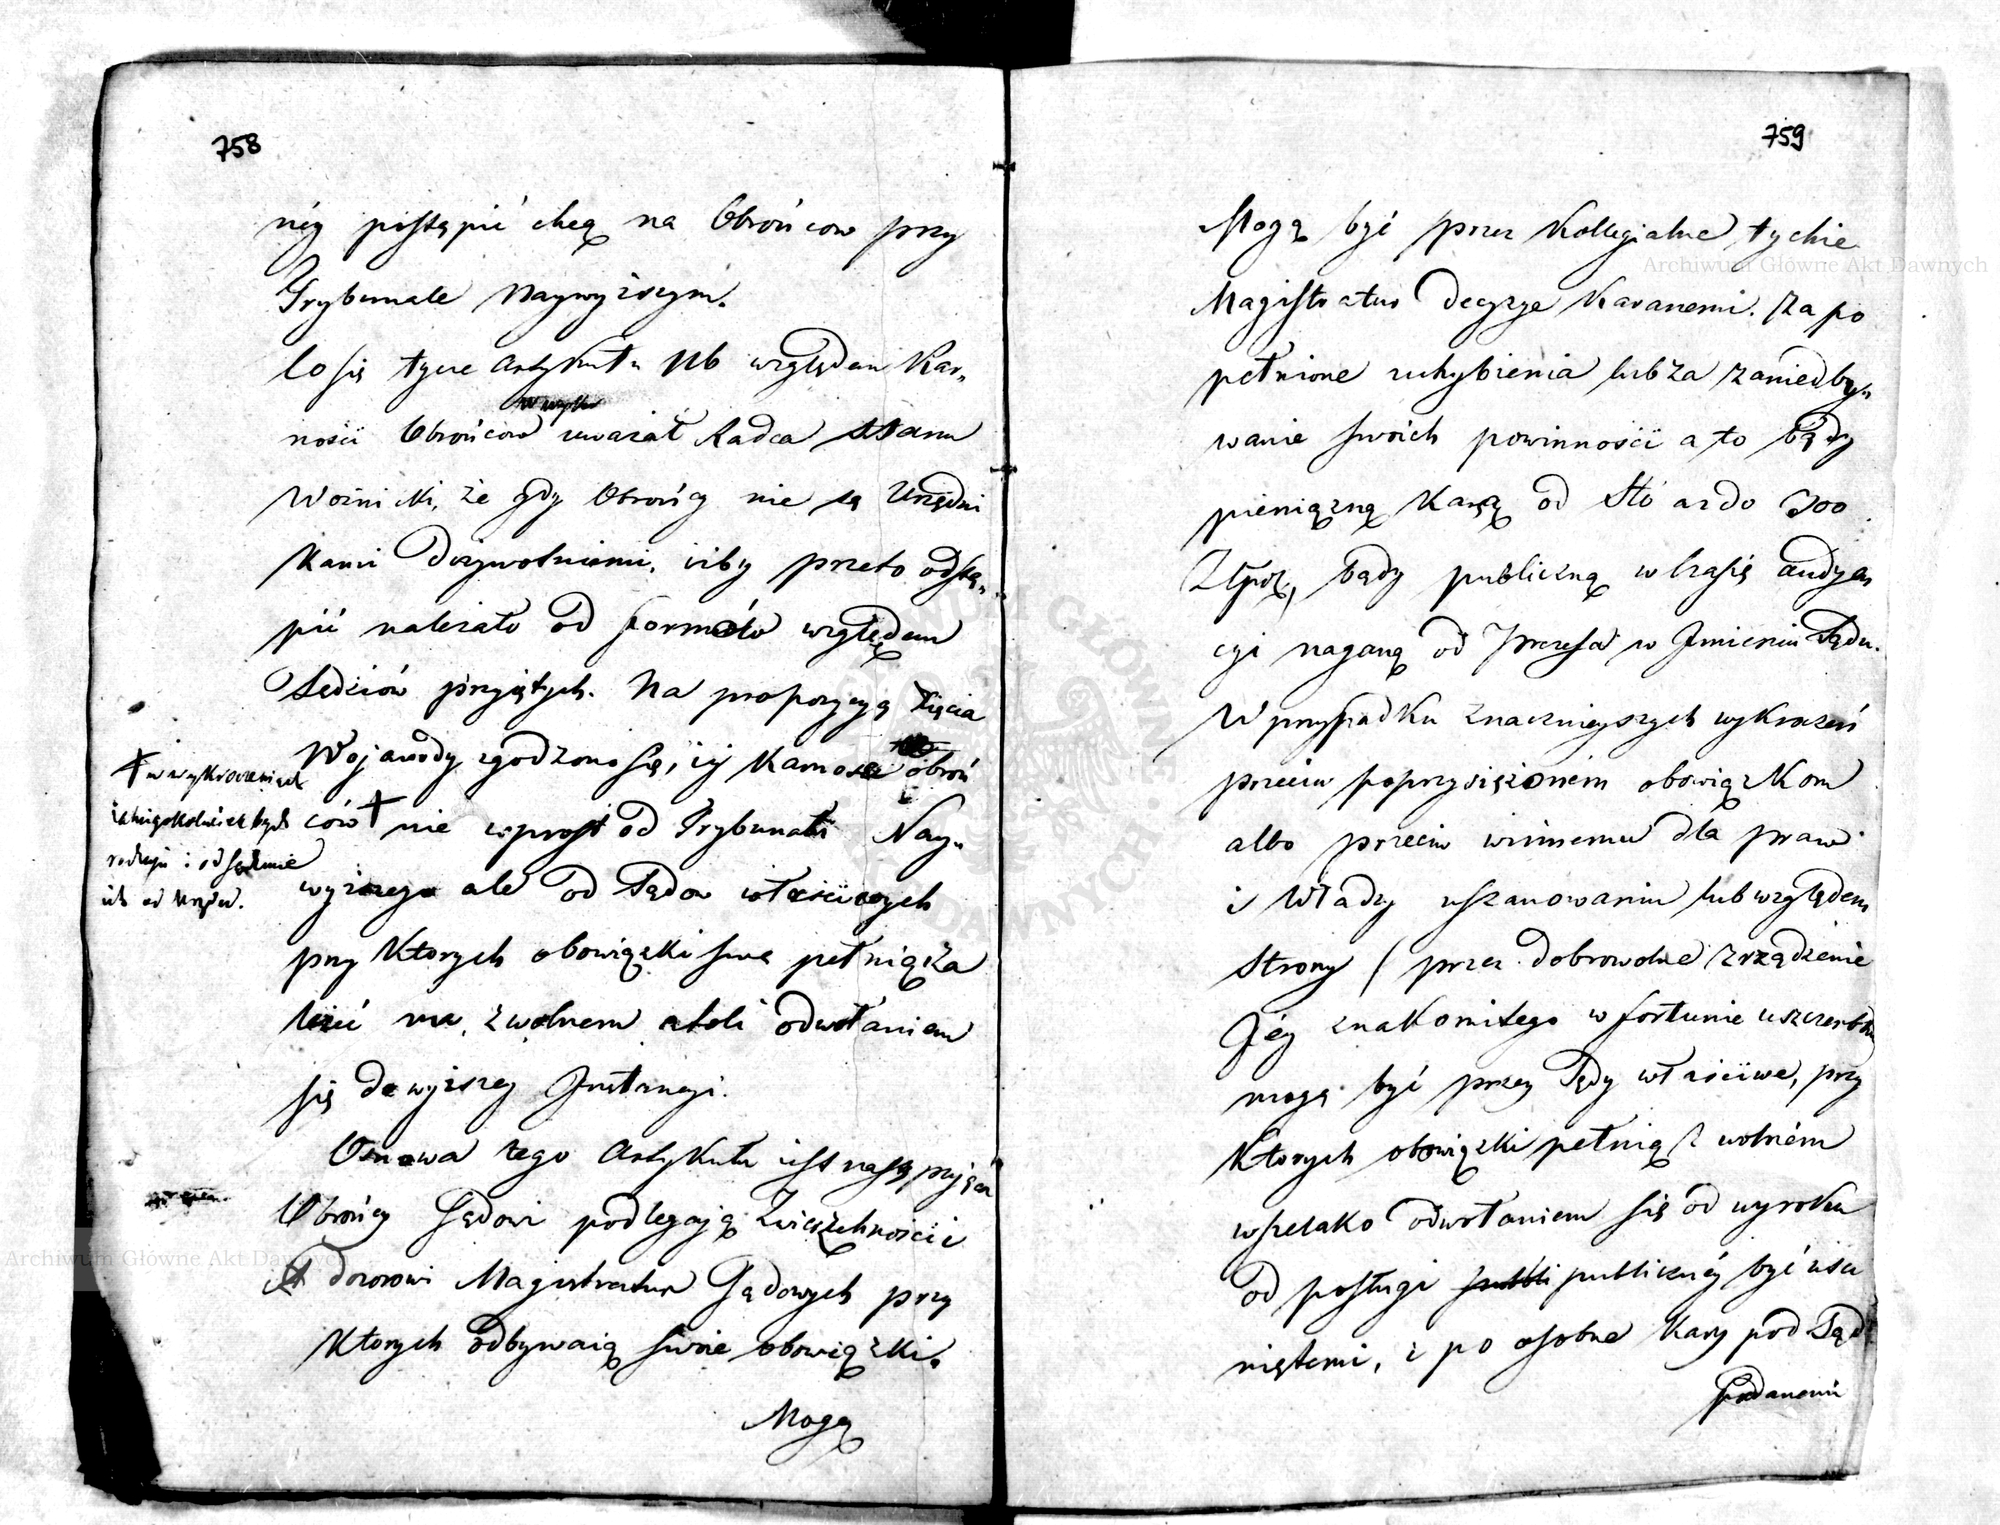 758
néy postąpić chcą na Obrońcow przy
Trybunale Naywyższym.
Co się tycze Artykułu 116 względem Kar„
ności Obrońcow uważał Radca Stanu
Woźnicki, że gdy Obrońcy nie są Urzędni
kami Dożywotniemi, iżby przeto odstą„
pić należało od form dla względem
Sędziów przyiętych. Na propozycyą Xięcia
Wojewody zgodzono się, iż karność obroń
ców + nie wprost od Trybunału Nay„
wyższego ale od Sądow właściwych
przy których obowiązki swe pełnią za
leżeć ma, z wolnem atoli odwołaniem
się do wyższey Instancyi.
Osnowa tego Artykułu iest następuiąca
Obrońcy Sądowi podlegają Zwierzchności i
dozorowi Magistratur Sądowych przy
których odbywaią swoie obowiązki.
Mogą
+ w wykroczeniach
iakiegokolwiek bądź
rodzaju i odsądzenie
ich od Urzędu.
759
Mogą być przez Kollegialne tychże
Magistratur decyzye karanemi. Za po
pełnione uchybienia lub za zaniedby„
wanie swoich powinności a to bądź
pieniężną karą od Sto aż do 300
Złpol, bądź publiczną w czasie audyen
cyi naganą od Prezesa w Imieniu Sądu.
W przypadku znacznieyszych wykroczeń
przeciw poprzysiężonem obowiązkom
albo przeciw winnemu dla praw
i Władzy uszanowaniu lub względem
Strony (przez dobrowolne zrządzenie
Jéy znakomitego w fortunie uszczerbku
mogą być przez Sądy właściwe, przy
których obowiązki pełnią z wolném
wszelako odwołaniem się od wyroku
od posługi publi publicznéy być usu
niętemi, i po osobne kary pod Sąd
poddanemi